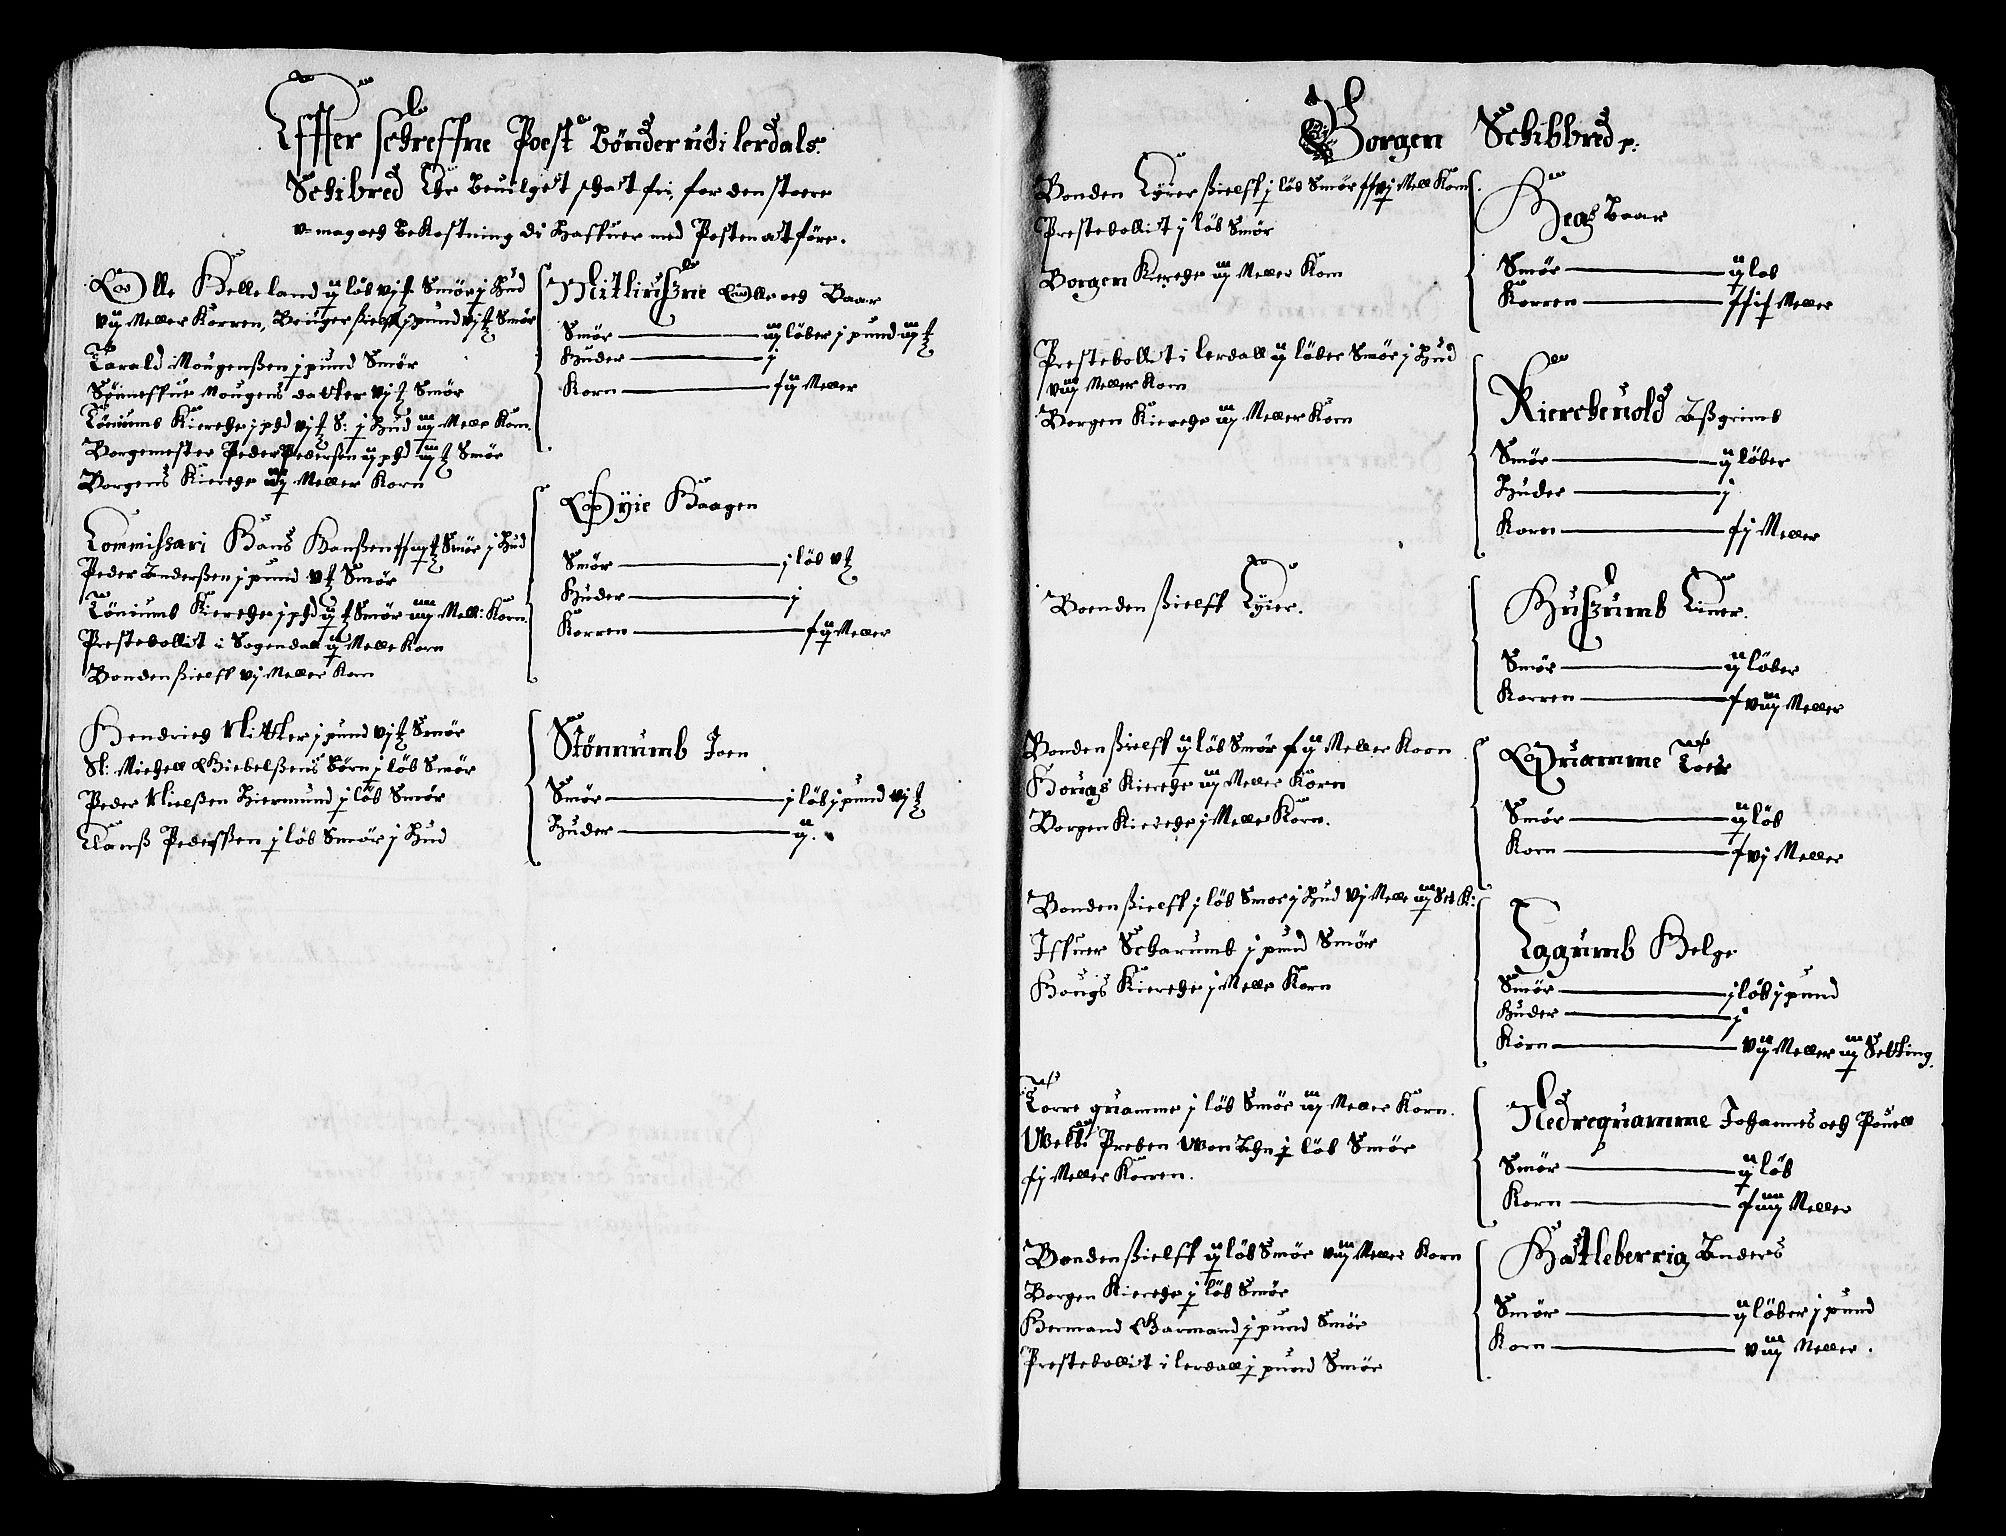 Effter schreffne Poest bönder udi lerdals
Schibred Ehr beuilget schat fri, for den store
v-mag och bekostning di haffuer med Posten at före.
Olle Helleland ij löb vj ₰ Smör j Hud
vij Meller Korren, Bruger sielff j pund vj ₰ Smör
Tarald Mougensßen j pund Smör
Sönneffue Mougens datter vj ₰ Smör
Töniums Kierche j phd vj ₰ S: j Hud iiij Melle Korn.
Borgemester Peder Pedersen ij phd iiij ₰ Smör
Borgens Kierche iij Meller Korn
Nitliruszne Olle och Baar
Smör iij löber j pund iiij ₰
Huder j
Korn xij Meller
Commissari Hans Hansßen Smör j Hud
Peder Anderßen j pund v ₰ Smör
Töniumb Kierche j phd ij ₰ Smör iiij Mell: Korn.
Prestebollit i Sogendall ij Melle Korn
Bonden ßielff vj Meller Korn
Øyie Haagen
Smör j löb v ₰
Huder j
Korren xij Meller
Hendrich Klitter j pund vj ₰ Smör
Sl: Michell Giebelßens börn j löb Smör
Peder Nielßen Hiermund j löb Smör
Clauß Pederßen j löb Smör j Hud
Stönnumb Joen
Smör j löb j pund vj ₰
Huder ij.
Borgen Schibbred p:
Bonden Eyier ßielff j löb Smör xxvj Mell Korn
Prestebollit j löb Smör
Borgen Kierche iij Meller Korn
Hegg Baar
Smör ij löb
Korren xxix Meller
Prestebollit i lerdall ij löber Smör j Hud
viij Meller Korn
Borgen Kierche iij Meller Korn
Kierckeuold Aßgrimb
Smör ij löber
Huder j
Korn xj Meller
Boenden ßielff Eyier.
Huszumb Einer.
Smör ij löber
Korren xviij Meller
Bonden ßielff ij löb Smör xij Meller Korn
Hougs Kierche iij Meller Korn
Borgen Kierche j Meller Korn.
Quamme Toer
Smör ij löb
Korn xvj Meller
Bonden ßielff j löb Smör j Hud vj Melle iij Set K:
Iffuer Scharumb j pund Smör
Hougs Kierche j Melle Korn
Eggumb Helge
Smör j löb j pund
Huder j
Korn vij Meller iij Setting.
Torre quamme j löb Smör iij Meller Korn.
Welb: Preben Von Ahn j löb Smör
xj Meller Korren.
Nedrequamme Johannes och Pouell
Smör ij löb
Korn xiiij Meller
Bonden ßielff ij löb Smör viij Meller Korn
Borgen Kierche j löb Smör
Hermand Garmand j pund Smör
Prestebollit i lerdall j pund Smör
Hatleberrig Anders
Smör ij löber j pund
Korn viij Meller.